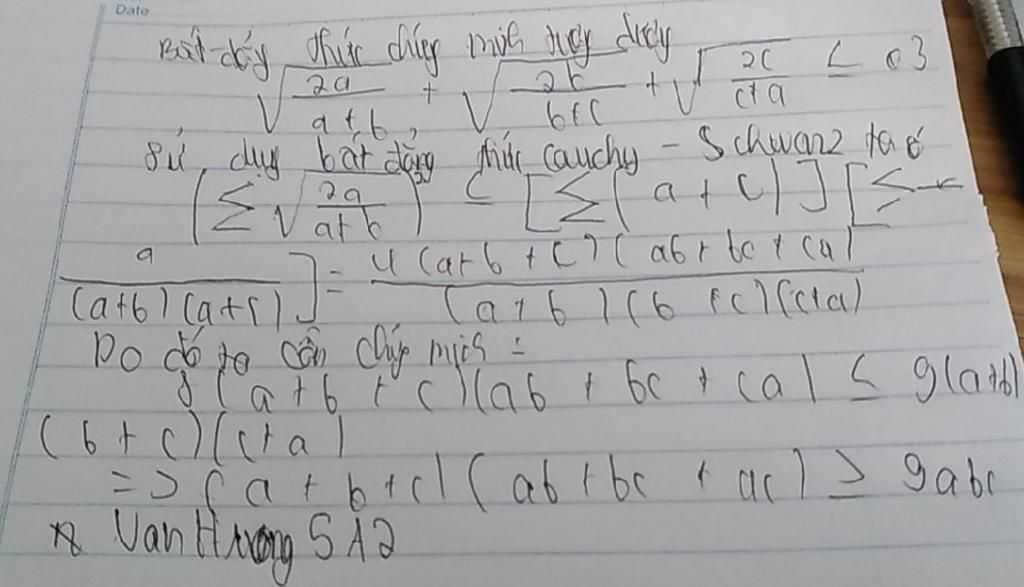 Date
Bất đẳng thức chứng minh tương đương
√(2a/(a+b)) + √(2b/(b+c)) + √(2c/(c+a)) ≤ 3
Sử dụng bất đẳng thức Cauchy - Schwarz ta có
(∑ √(2a/(a+b)))² ≤ [∑(a + c)] [∑
a/((a+b)(a+c))] = 4(a+b+c)(ab+bc+ca)/((a+b)(b+c)(c+a))
Do đó ta cần chứng minh :
8(a+b+c)(ab+bc+ca) ≤ 9(a+b)
(b+c)(c+a)
=> (a+b+c)(ab+bc+ac) ≥ 9abc
Van Hương 5A2